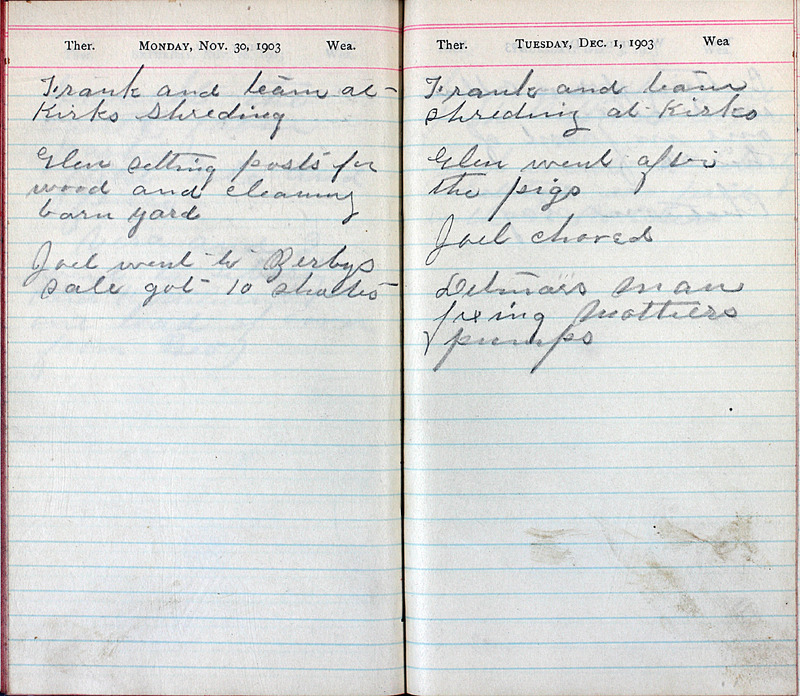 Ther. Monday, Nov. 30, 1903 Wea.
Frank and team at
Kirks shreding
Glen setting posts for
wood and cleaning
barn yard
Joel went to Zerbys
sale got 10 shotes
Ther. Tuesday, Dec. 1, 1903 Wea
Frank and team
shreding at Kirks
Glen went after
the pigs
Joel chored
man
fixing Mothers
pumps